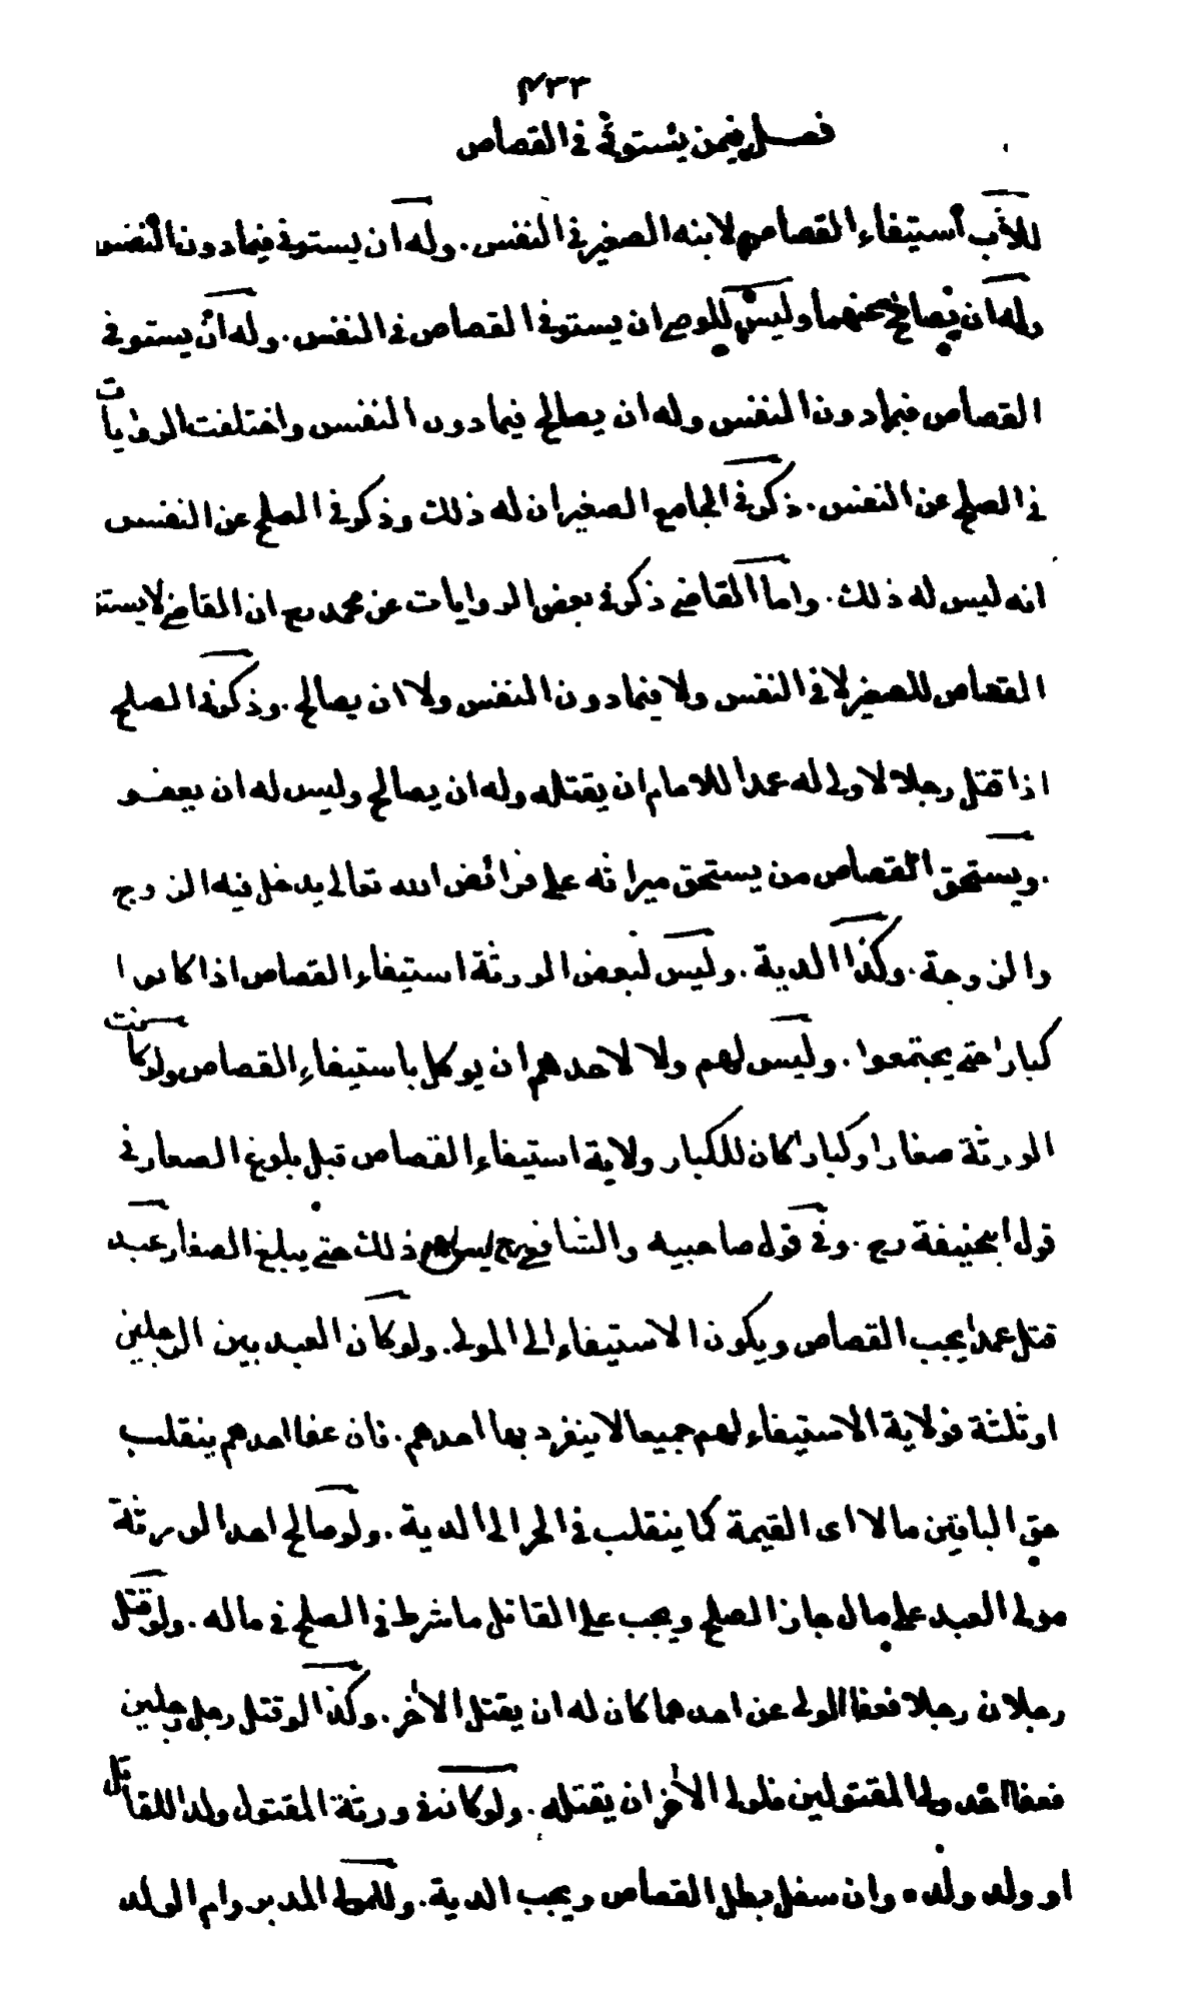 ٤٣٣
فصل فيمن يستوفى في القصاص
للأب أستيفاء القصاص لابنه الصغير في النفس . وله ان يستوفى فيما دون النفس
وله ان يصالح عنهما وليس للوصى ان يستوفى القصاص فى النفس . وله أن يستوفى
القصاص فيما دون النفس وله ان يصالح فيما دون النفس واختلفت الروايات
فى الصلح عن النفس . ذكر فى الجامع الصغير ان له ذلك وذكر فى الصلح عن النفس
انه ليس له ذلك . واما القاضى ذكر فى بعض الروايات عن محمد رح ان القاضى لا يستو
القصاص للصغير لا فى النفس ولا فيما دون النفس ولا ان يصالح . وذكر فى الصلح
اذا قتل رجلا لا ولى له عمدا للامام ان يقتله وله ان يصالح وليس له ان يعفو
. ويستحق القصاص من يستحق ميراثه على فرائض الله تعالى يدخل فيه الزوج
والزوجة . وكذا الدية . وليس لبعض الورثة استيفاء القصاص اذا كانوا
كبارا حتى يجتمعوا . وليس لهم ولا لاحدهم ان يوكل باستيفاء القصاص ولو كانت
الورثة صغارا وكبارا كان للكبار ولاية استيفاء القصاص قبل بلوغ الصغار فى
قول ابيحنيفة رح . وفى قول صاحبيه والشافعى رح ليس لهم ذلك حتى يبلغ الصغار عبد
قتل عمدا يجب القصاص ويكون الاستيفاء الى المولى . ولو كان العبد بين الرجلين
او ثلثة فولاية الاستيفاء لهم جميعا لا ينفرد بها احدهم . فان عفا احدهم ينقلب
حق الباقين مالا اى القيمة كما ينقلب فى الحر الى الدية . ولو صالح احد الورثة
مولى العبد على مال جاز الصلح ويجب على القاتل ما شرط فى الصلح فى ماله . ولو قتل
رجلان رجلا فعفا المولى عن احدهما كان له ان يقتل الأخر . وكذا لو قتل رجل رجلين
فعفا احد ولى المقتولين فلولى الأخر ان يقتله . ولو كان فى ورثة المقتول ولد للقاتل
او ولد ولده وان سفل بطل القصاص ويجب الدية . وللمولى المدبر وام الولد